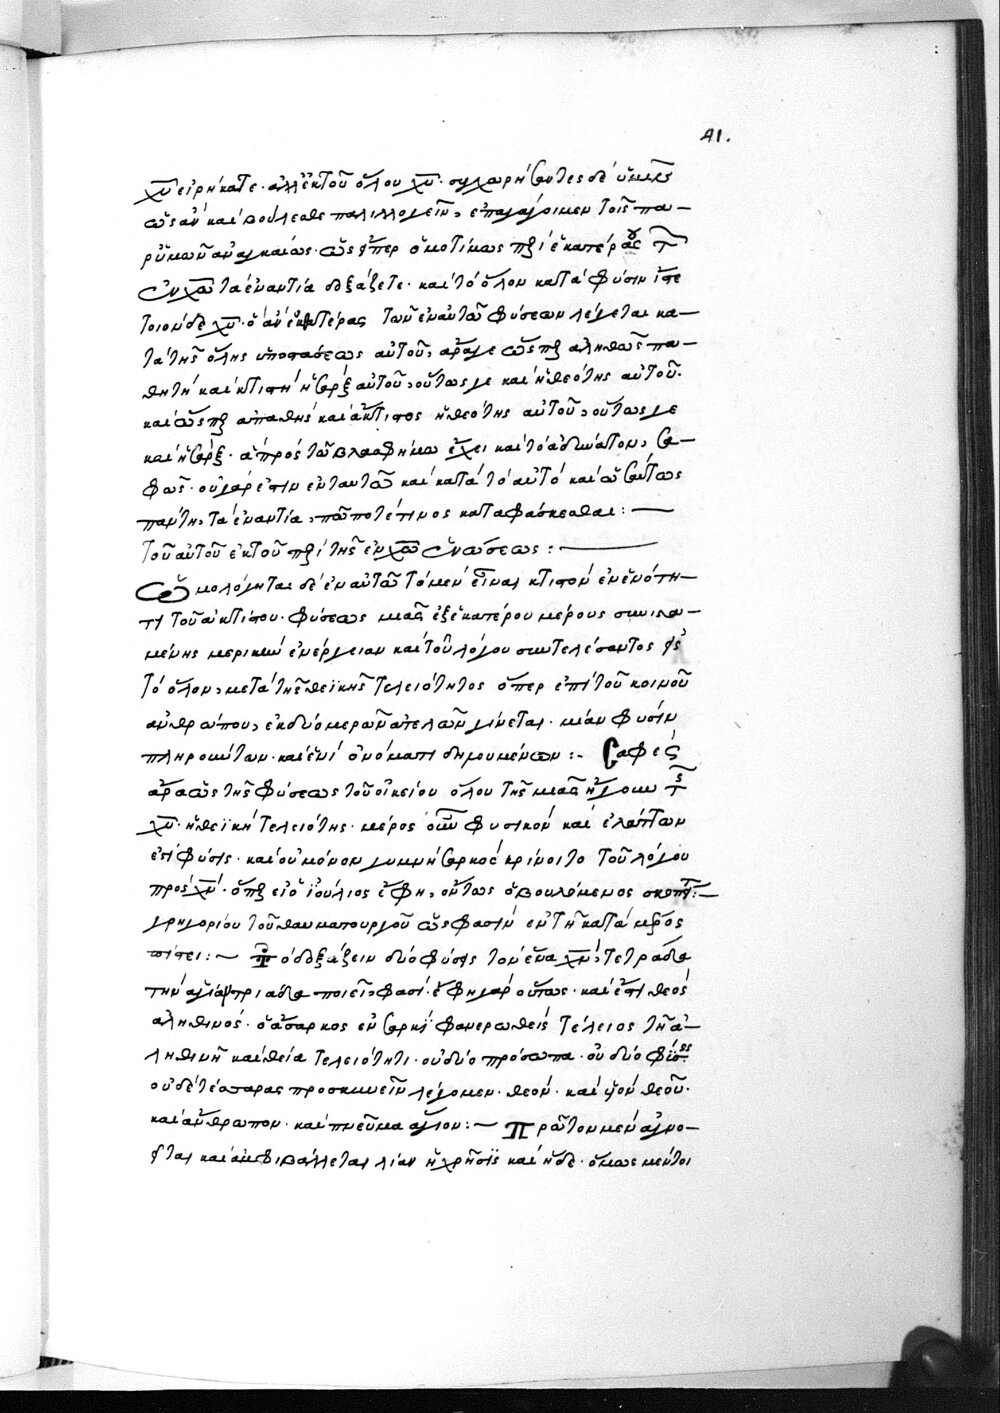 41.
χ̅υ̅ εἰρήκατε· ἀλλ' ἐκ τοῦ ὅλου χ̅υ̅· συγχωρήσαντες δὲ ὑμῖν
ὡς ἂν καὶ βούλεσθε παλιλλογεῖν, ἐπαγάγοιμεν τοῖς πα-
ρ' ὑμῶν ἀναγκαίως· ὡς εἴπερ ὁμοτίμως περὶ ἑκατέρας
ἐν χ̅ω̅ τὰ ἐναντία δοξάζετε· καὶ τὸ ὅλον κατὰ φύσιν ἴστε
τοιόνδε χ̅ν̅· ὃ ἂν ἐκατέρας τῶν ἐν αὐτῶ φύσεων λέγεται κα-
τὰ τῆς ὅλης ὑποστάσεως αὐτοῦ, ἆρά γε ὥσπερ ἀληθῶς πα-
θητὴ καὶ κτιστὴ ἡ σὰρξ αὐτοῦ, οὕτως γε καὶ ἡ θεότης αὐτοῦ·
καὶ ὥσπερ ἀπαθὴς καὶ ἄκτιστος ἡ θεότης αὐτοῦ, οὕτως γε
καὶ ἡ σάρξ· ἃ πρὸς τῶ βλασφήμω ἔχει καὶ τὸ ἀδύνατον, σα-
φῶς· οὐ γάρ ἐστιν ἐν ταυτῶ καὶ κατὰ τὸ αὐτὸ καὶ ὡσαύτως
πάντη, τὰ ἐναντία, πώποτέ τινος καταφάσκεσθαι: —
τοῦ αὐτοῦ ἐκ τοῦ περὶ τῆς ἐν χ̅ω̅ ἑνώσεως: —
Ὡμολόγηται δὲ ἐν αὐτῶ τὸ μὲν εἶναι κτιστὸν ἐν ἑνότη-
τι τοῦ ἀκτίστου· φύσεως μιᾶς ἐξ ἑκατέρου μέρους συνιστα-
μένης μερικὴν ἐνέργειαν καὶ τοῦ λόγου συντελέσαντος εἰς
τὸ ὅλον, μετὰ τῆς θεϊκῆς τελειότητος ὅπερ ἐπὶ τοῦ κοινοῦ
ἀνθρώπου, ἐκ δύο μερῶν ἀτελῶν γίνεται· μίαν φύσιν
πληρούντων· καὶ ἑνὶ ὀνόματι δηλουμένων:- Σαφὲς
ἄρα ὡς τῆς φύσεως τοῦ οἰκείου ὅλου τῆς μιᾶς ἤγουν τῆς
χ̅υ̅· ἡ θεϊκὴ τελειότης· μέρος οὖσα φυσικὸν καὶ ἐλάττων
ἐστὶ φύσις· καὶ οὐ μόνον γυμνὴ σαρκὸς κρίνοιτο τοῦ λόγου
πρὸς χ̅ν̅· ὅπερ εἰ ὁ ἰούλιος ἔφη, οὕτως ὁ βουλόμενος σκοπεῖ:—
γρηγορίου τοῦ θαυματουργοῦ ὥς φασιν ἐν τῆ κατὰ μέρος
πίστει: ~ Τὸ δοξάζειν δύο φύσεις τὸν ἕνα χ̅ν̅, τετράδα
τὴν ἁγίαν τριάδα ποιεῖ, φασί· ἔφη γὰρ οὕτως· καὶ ἔστι θεὸς
ἀληθινός· ὁ ἄσαρκος ἐν σαρκὶ φανερωθεὶς τέλειος τῆ ἀ-
ληθινῆ καὶ θεία τελειότητι· οὐ δύο πρόσωπα· οὐ δύο φύσεις
οὐδὲ τέσσαρας προσκυνεῖν λέγομεν· θεόν· καὶ υἱὸν θεοῦ·
καὶ ἄνθρωπον· καὶ πνεῦμα ἅγιον: ~ Πρῶτον μὲν ἀγνο-
εῖται καὶ ἀμφιβάλλεται λίαν ἡ χρῆσις καὶ ἥδε· ὅμως μέντοι